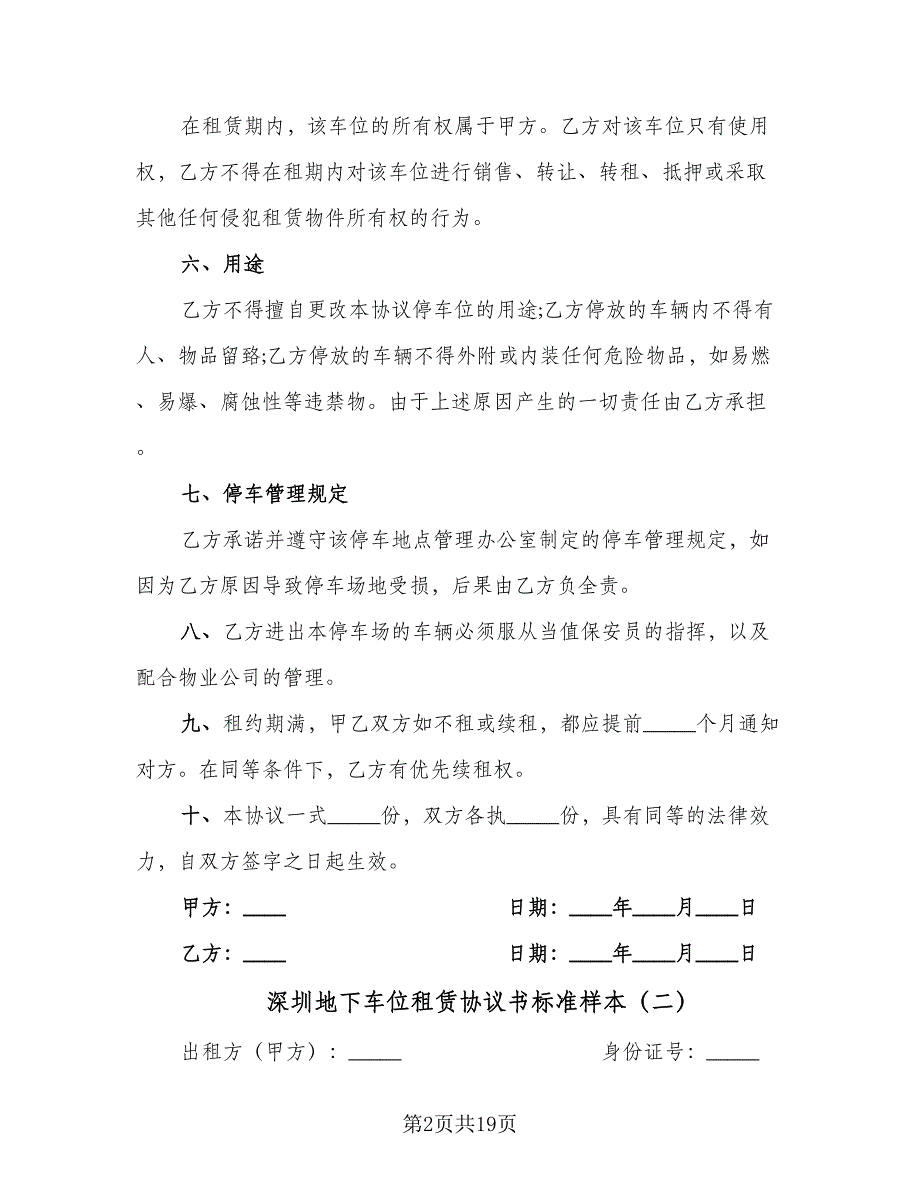 在租赁期内，该车位的所有权属于甲方。乙方对该车位只有使用
权，乙方不得在租期内对该车位进行销售、转让、转租、抵押或采取
其他任何侵犯租赁物件所有权的行为。
六、用途
乙方不得擅自更改本协议停车位的用途;乙方停放的车辆内不得有
人、物品留臵;乙方停放的车辆不得外附或内装任何危险物品，如易燃
、易爆、腐蚀性等违禁物。由于上述原因产生的一切责任由乙方承担
。
七、停车管理规定
乙方承诺并遵守该停车地点管理办公室制定的停车管理规定，如
因为乙方原因导致停车场地受损，后果由乙方负全责。
八、乙方进出本停车场的车辆必须服从当值保安员的指挥，以及
配合物业公司的管理。
九、租约期满，甲乙双方如不租或续租，都应提前_____个月通知
对方。在同等条件下，乙方有优先续租权。
十、本协议一式_____份，双方各执_____份，具有同等的法律效
力，自双方签字之日起生效。
甲方：____ 日期：____年____月____日
乙方：____ 日期：____年____月____日
深圳地下车位租赁协议书标准样本（二）
出租方（甲方）：_____ 身份证号：_____
第2页共19页